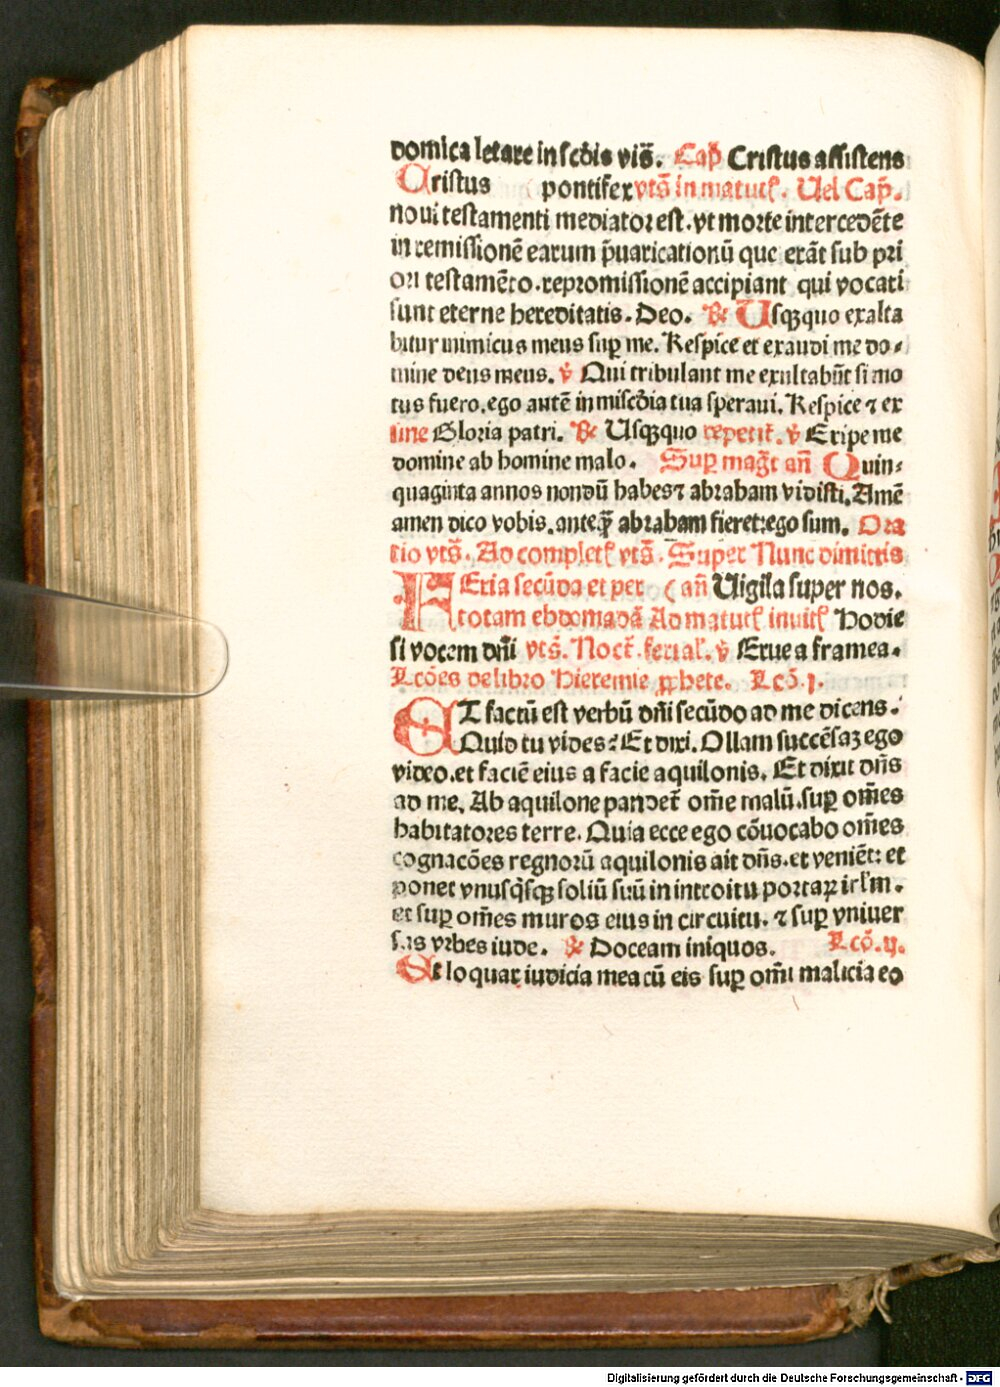 domica letare in scd̄is vts̄. Cap̄ Cristus assistens
Cristus pontifex vts̄ in matuct̄. Uel Cap̄.
noui testamenti mediator est. vt morte intercedēte
in remissionē earum p̄uaricationū que erāt sub pri
ori testamēto. repromissionē accipiant qui vocati
sunt eterne hereditatis. Deo. ℟ Usqꝫquo exalta
bitur inimicus meus suꝑ me. Respice et exaudi me do⸗
mine deus meus. ℣ Qui tribulant me exultabūt si mo
tus fuero. ego autē in misc̄dia tua speraui. Respice ⁊ ex
sine Gloria patri. ℟ Usqꝫquo repetit̄. ℣ Eripe me
domine ab homine malo. Suꝑ magt̄ an̄ Quin⸗
quaginta annos nondū habes ⁊ abrabam vidisti. Amē
amen dico vobis. anteꝙ̄ abrabam fieret: ego sum. Ora
tio vts̄. Ad complet̄ vts̄. Super Nunc dimittis
FEria secūda et per ( an̄ Uigila super nos.
totam ebdomadā Ad matut̄ inuit̄ Hodie
si vocem dn̄i vts̄. Noct̄. ferial̄. ℣ Erue a framea.
Lcōes de libro Hieremie ꝓphete. Lcō. j.
ET factū est verbū dn̄i secūdo ad me dicens.
Quid tu vides? Et dixi. Ollam succēsaꝫ ego
video. et faciē eius a facie aquilonis. Et dixit dn̄s
ad me. Ab aquilone pandet̄ om̄e malū. suꝑ om̄es
habitatores terre. Quia ecce ego cōuocabo om̄es
cognacōes regnorū aquilonis ait dn̄s. et veniēt: et
ponet vnusq̄sqꝫ soliū suū in introitu portaꝝ irl̄m.
et suꝑ om̄es muros eius in circuitu. ⁊ suꝑ vniuer
sas vrbes iude. ℟ Doceam iniquos. Lcō. ij.
Et loquar iudicia mea cū eis suꝑ om̄i malicia eo
Digitalisierung gefördert durch die Deutsche Forschungsgemeinschaft - DFG